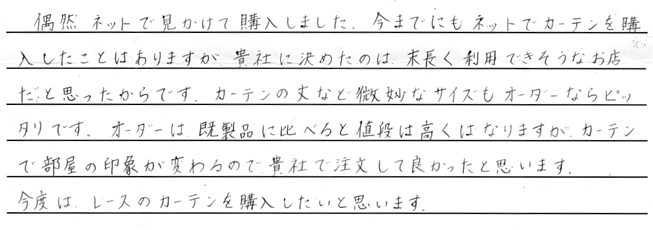 偶然 ネットで見かけて購入しました. 今までにも ネットでカーテンを購
入したことはありますが 貴社に決めたのは 末長く利用できそうなお店
だと思ったからです. カーテンの丈など微妙なサイズもオーダーならピッ
タリです. オーダーは 既製品に比べると値段は高くはなりますが カーテン
で部屋の印象が変わるので 貴社で注文して良かったと思います.
今度は レースのカーテンを購入したいと思います.